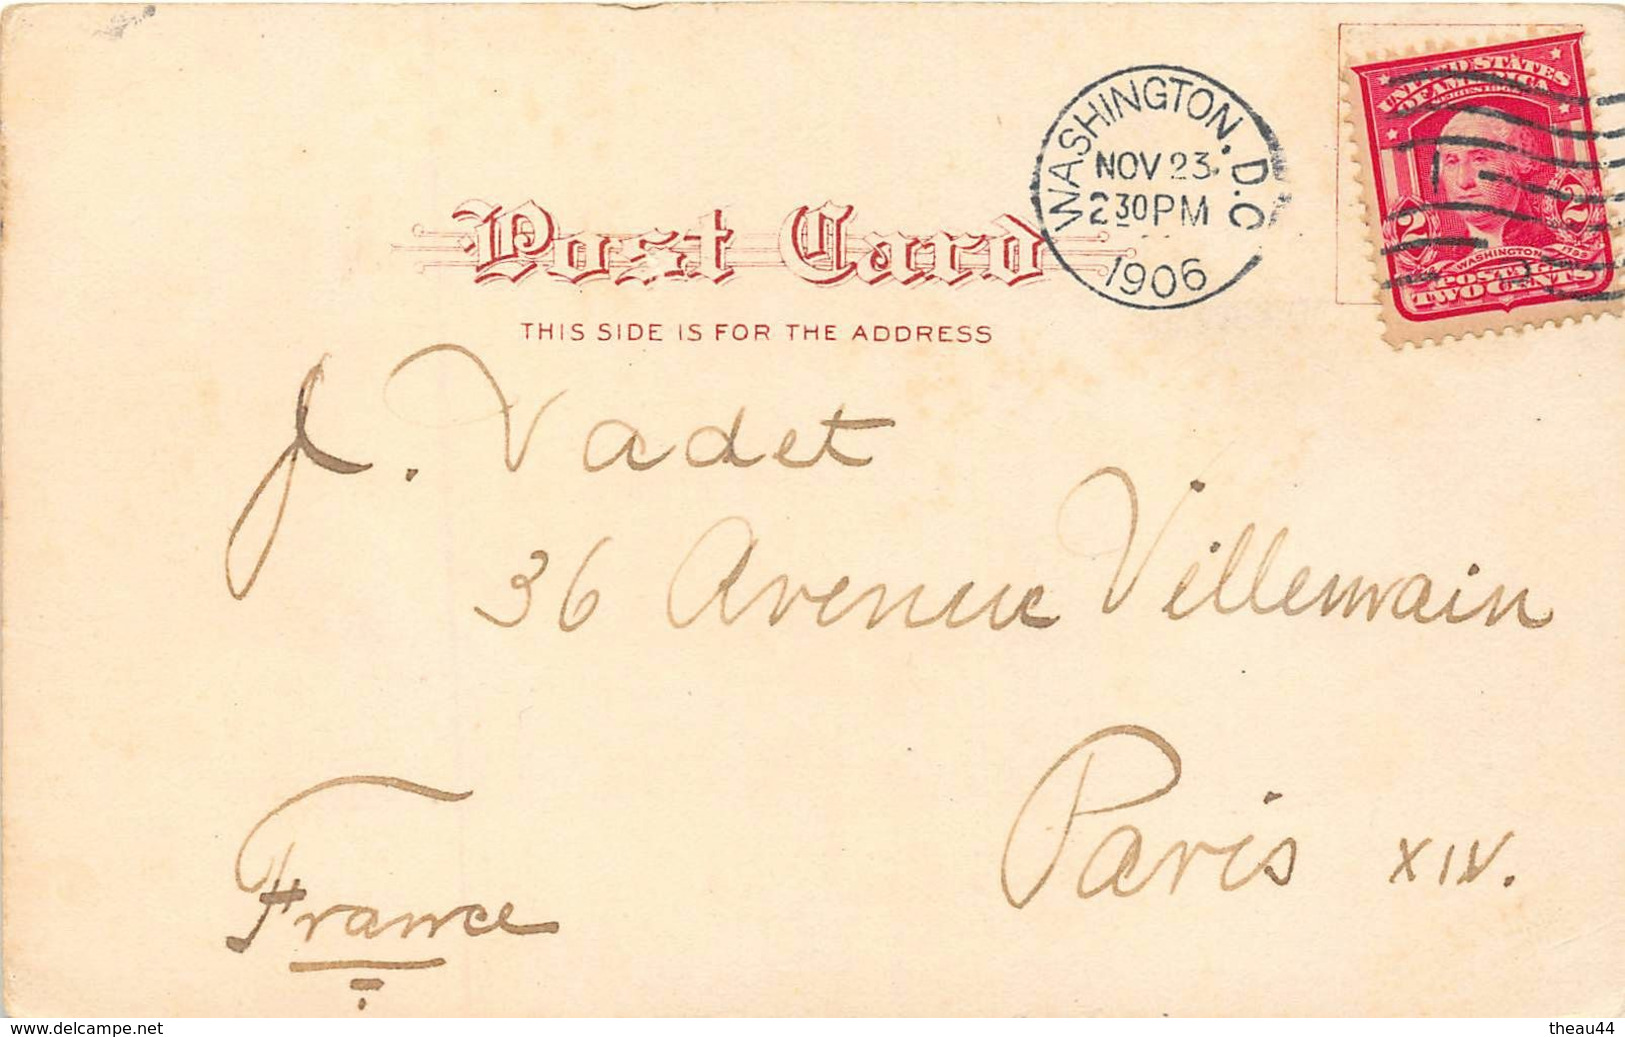 UNITED STATES
OF AMERICA
WASHINGTON
POSTAGE
TWO CENTS
2 2
WASHINGTON, D.C.
NOV 23
2 30 PM
1906
Post Card
THIS SIDE IS FOR THE ADDRESS
J. Vadet
36 Avenue Villemain
Paris XIV.
France
www.delcampe.net
theau44